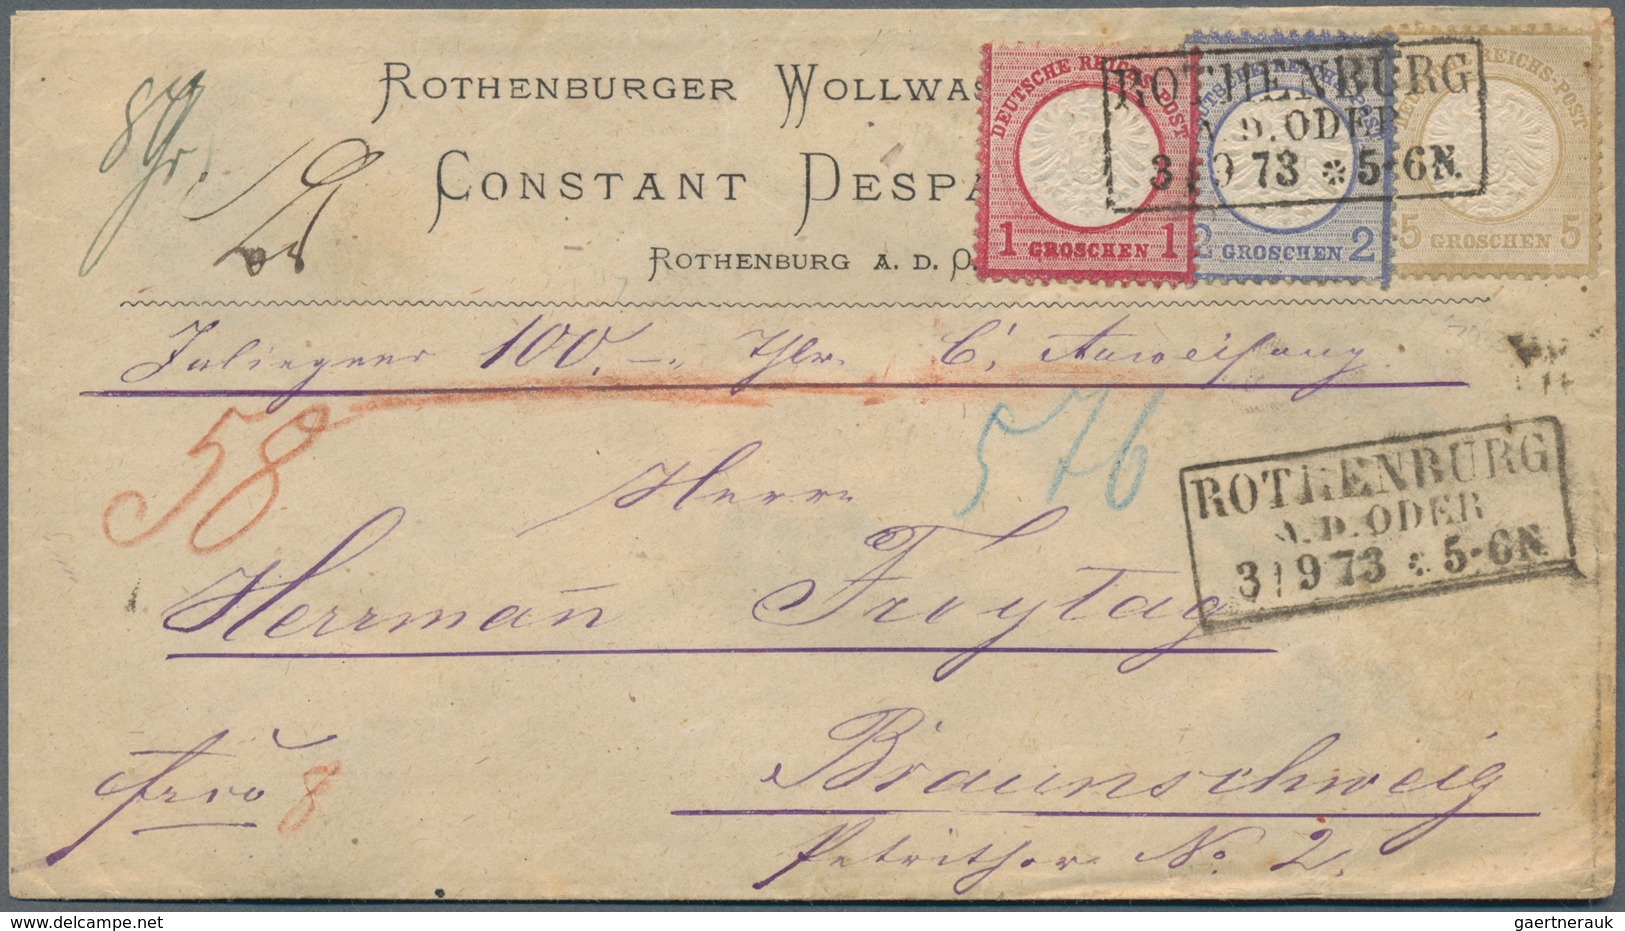 ROTHENBURGER WOLLWAS
CONSTANT DESPA
ROTHENBURG A. D. O.
DEUTSCHE REICHS-POST
1 GROSCHEN 1
2 GROSCHEN 2
REICHS-POST
5 GROSCHEN 5
ROTHENBURG
A. D. ODER
3 9 73 * 5-6N.
8 Gr.
100.— Thlr. Anweisung
58
576
Herrn
Herrmann Freytag
ROTHENBURG
A. D. ODER
3 9 73 * 5-6N.
Braunschweig
frco 8
Petrithor No. 2.
gaertnerauk